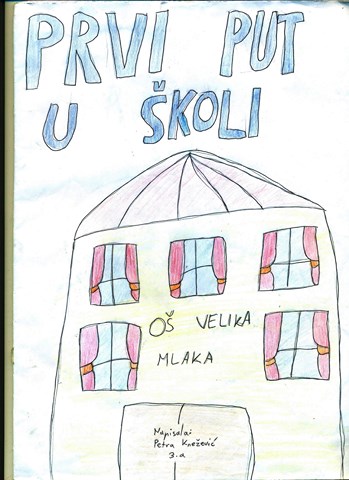 PRVI PUT
U ŠKOLI
OŠ VELIKA
MLAKA
Napisala:
Petra Knežević
3.a